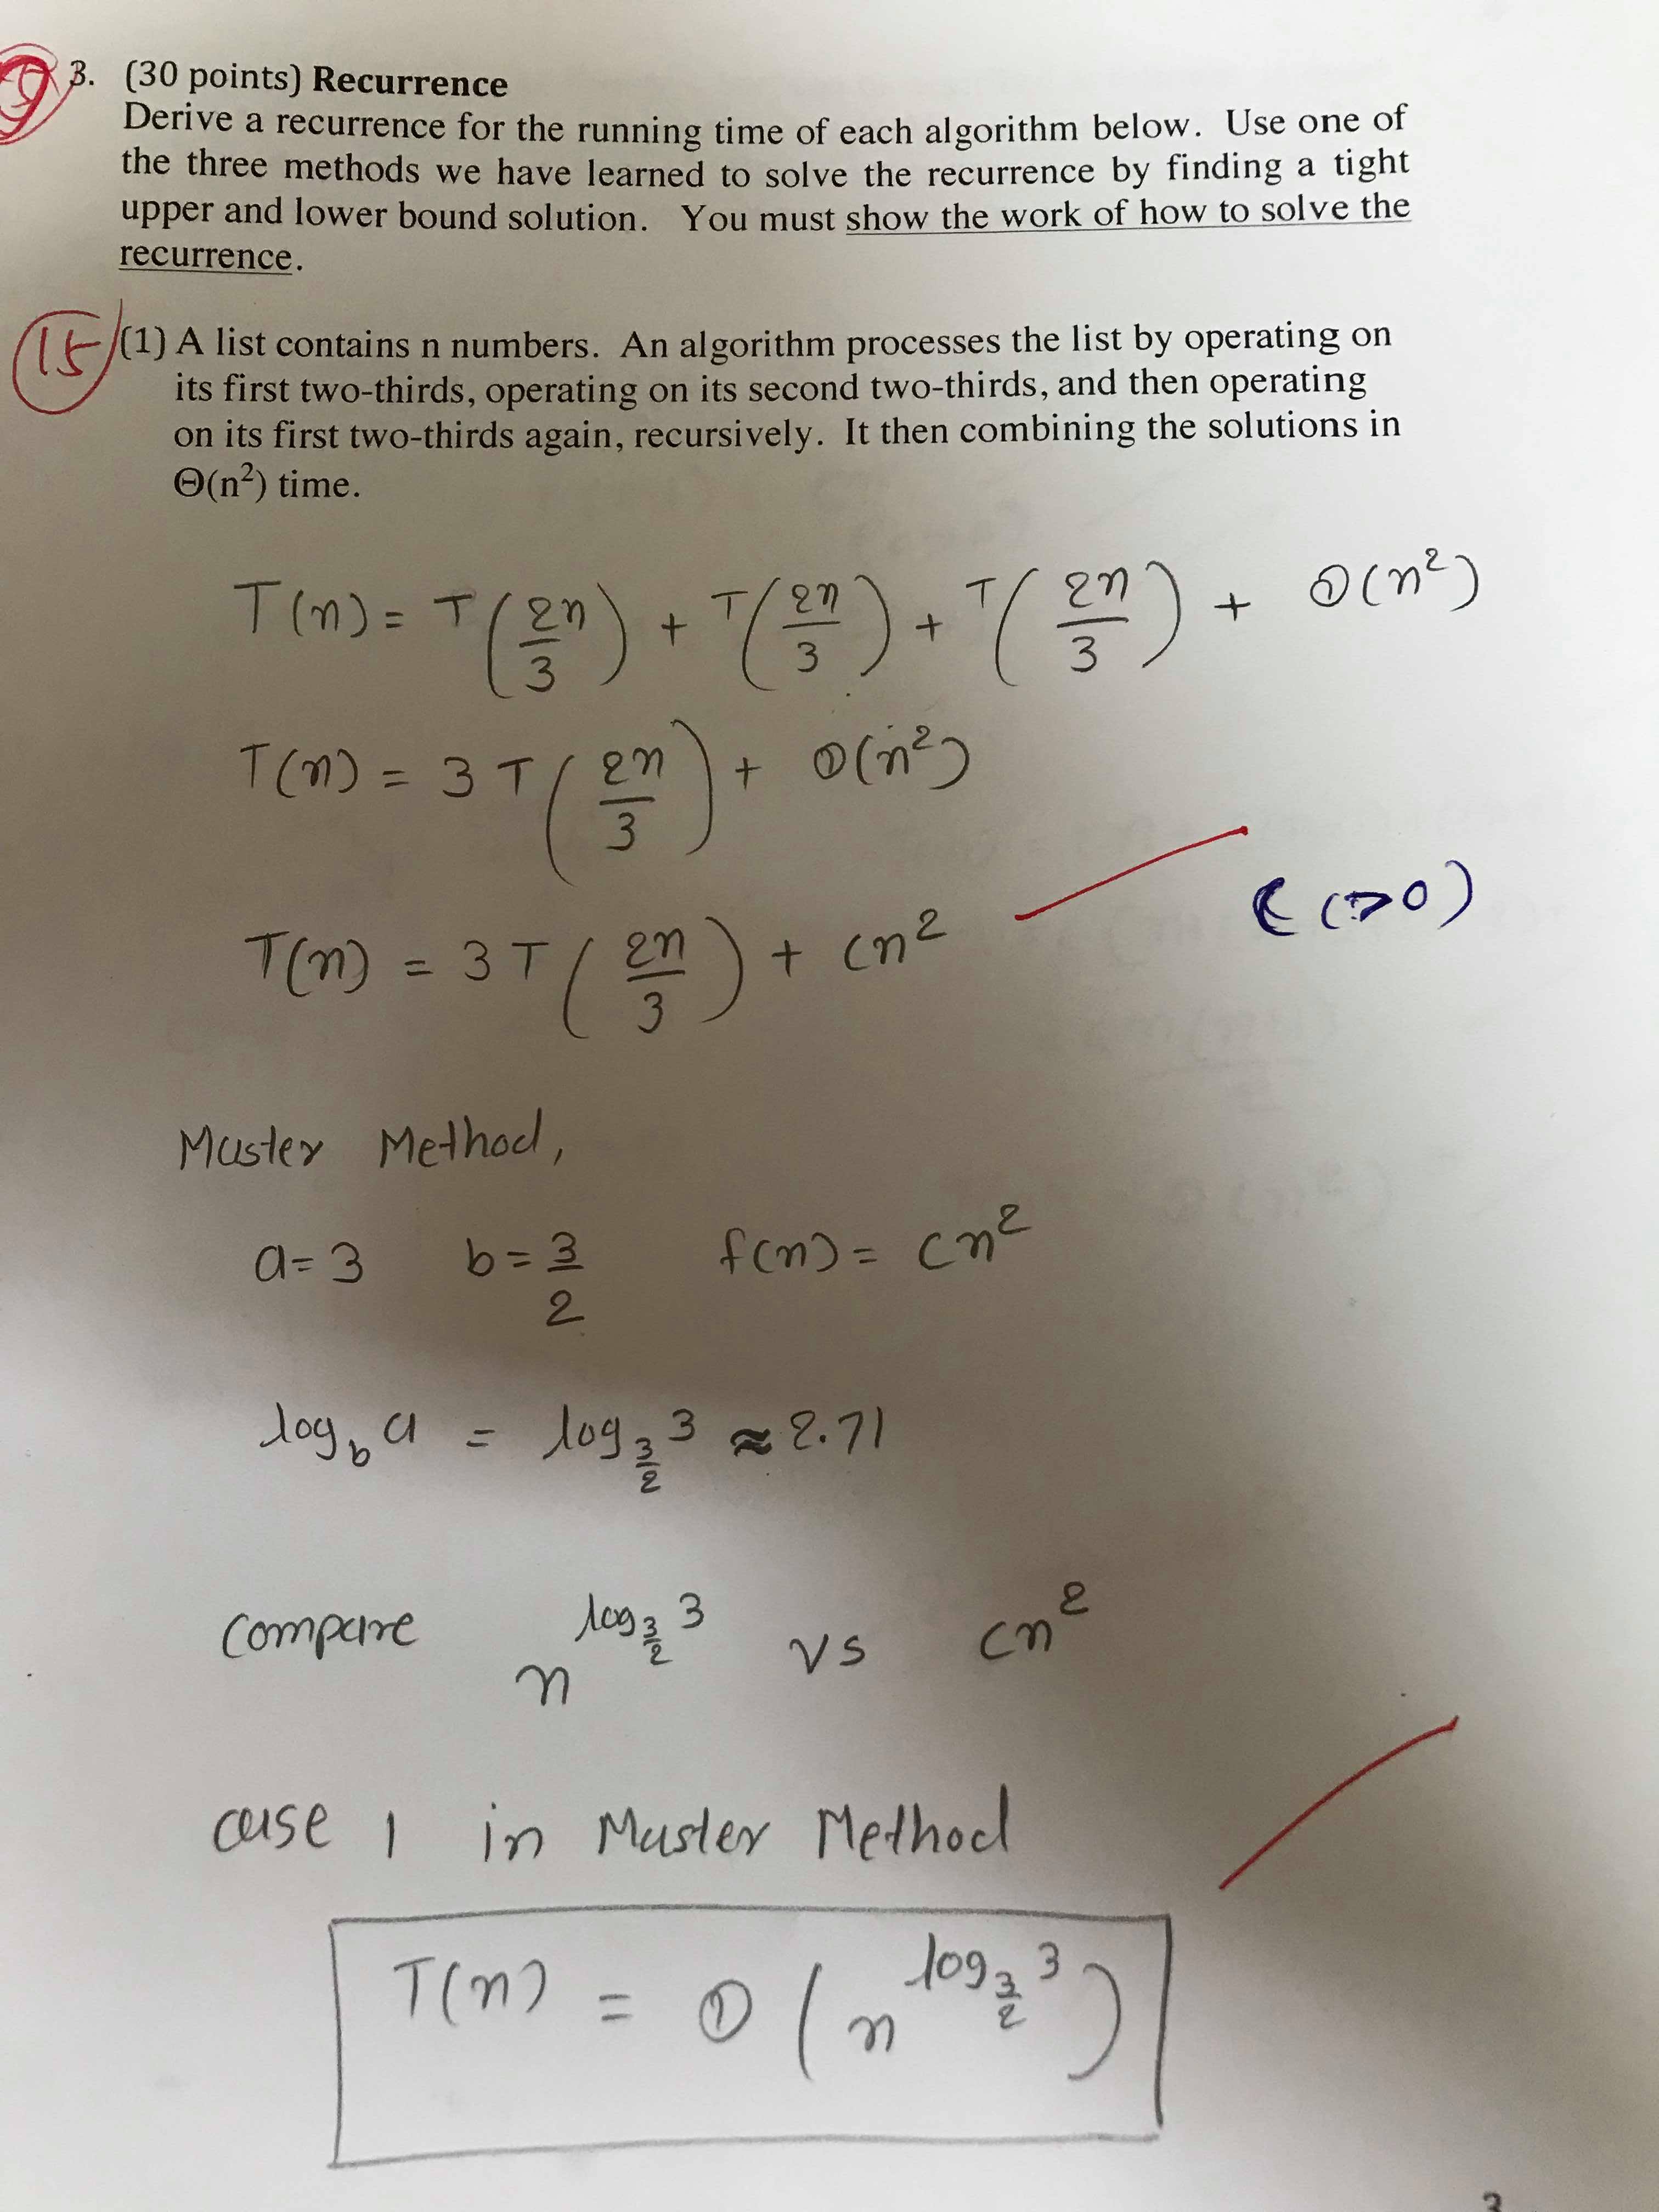 9
3. (30 points) Recurrence
Derive a recurrence for the running time of each algorithm below. Use one of
the three methods we have learned to solve the recurrence by finding a tight
upper and lower bound solution. You must show the work of how to solve the
recurrence.
15
(1) A list contains n numbers. An algorithm processes the list by operating on
its first two-thirds, operating on its second two-thirds, and then operating
on its first two-thirds again, recursively. It then combining the solutions in
Θ(n²) time.
T(n) = T(2n/3) + T(2n/3) + T(2n/3) + Θ(n²)
T(n) = 3T(2n/3) + Θ(n²)
T(n) = 3T(2n/3) + cn²
(>0)
Master Method,
a=3 b=3/2 f(n) = cn²
log_b a = log_{3/2} 3 ≈ 2.71
compare n^{log_{3/2} 3} vs cn²
case 1 in Master Method
T(n) = Θ(n^{log_{3/2} 3})